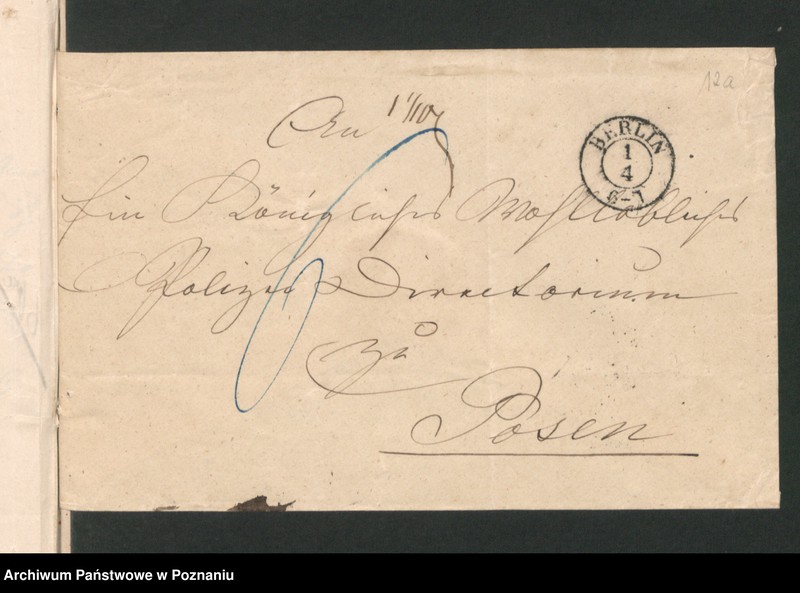 12a
An
1 1/10
BERLIN
1
4
6-7
Ein Königliches Wohllöbliches
Polizei Directorium
zu
Posen
Archiwum Państwowe w Poznaniu